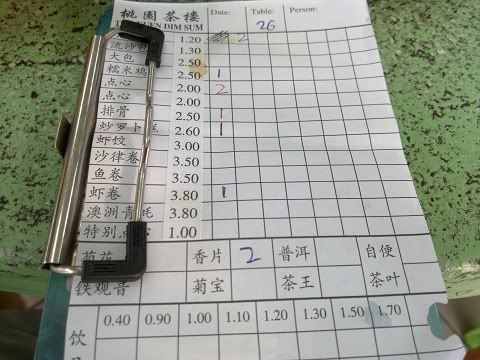 桃園茶樓 Date: Table: 26 Person:
DIM SUM
流沙包 1.20 2
大包 1.30
糯米鸡 2.50 1
点心 2.00 2
点心 2.00
排骨 2.50 1
炒罗卜糕 2.60 1
虾饺 3.00
沙律卷 3.50
鱼卷 3.50
虾卷 3.80 1
澳洲青 3.80
特别点心 1.00
菊花 香片 2 普洱 自便
铁观音 菊宝 茶王 茶叶
饮 0.40 0.90 1.00 1.10 1.20 1.30 1.50 1.70